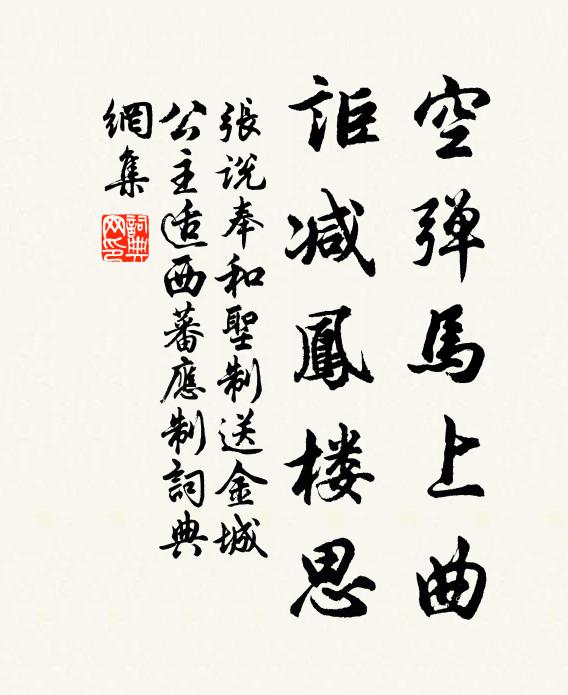 空弹馬上曲
詎减鳳楼思
張说奉和聖制送金城
公主适西蕃應制詞典
網集
詞典網印